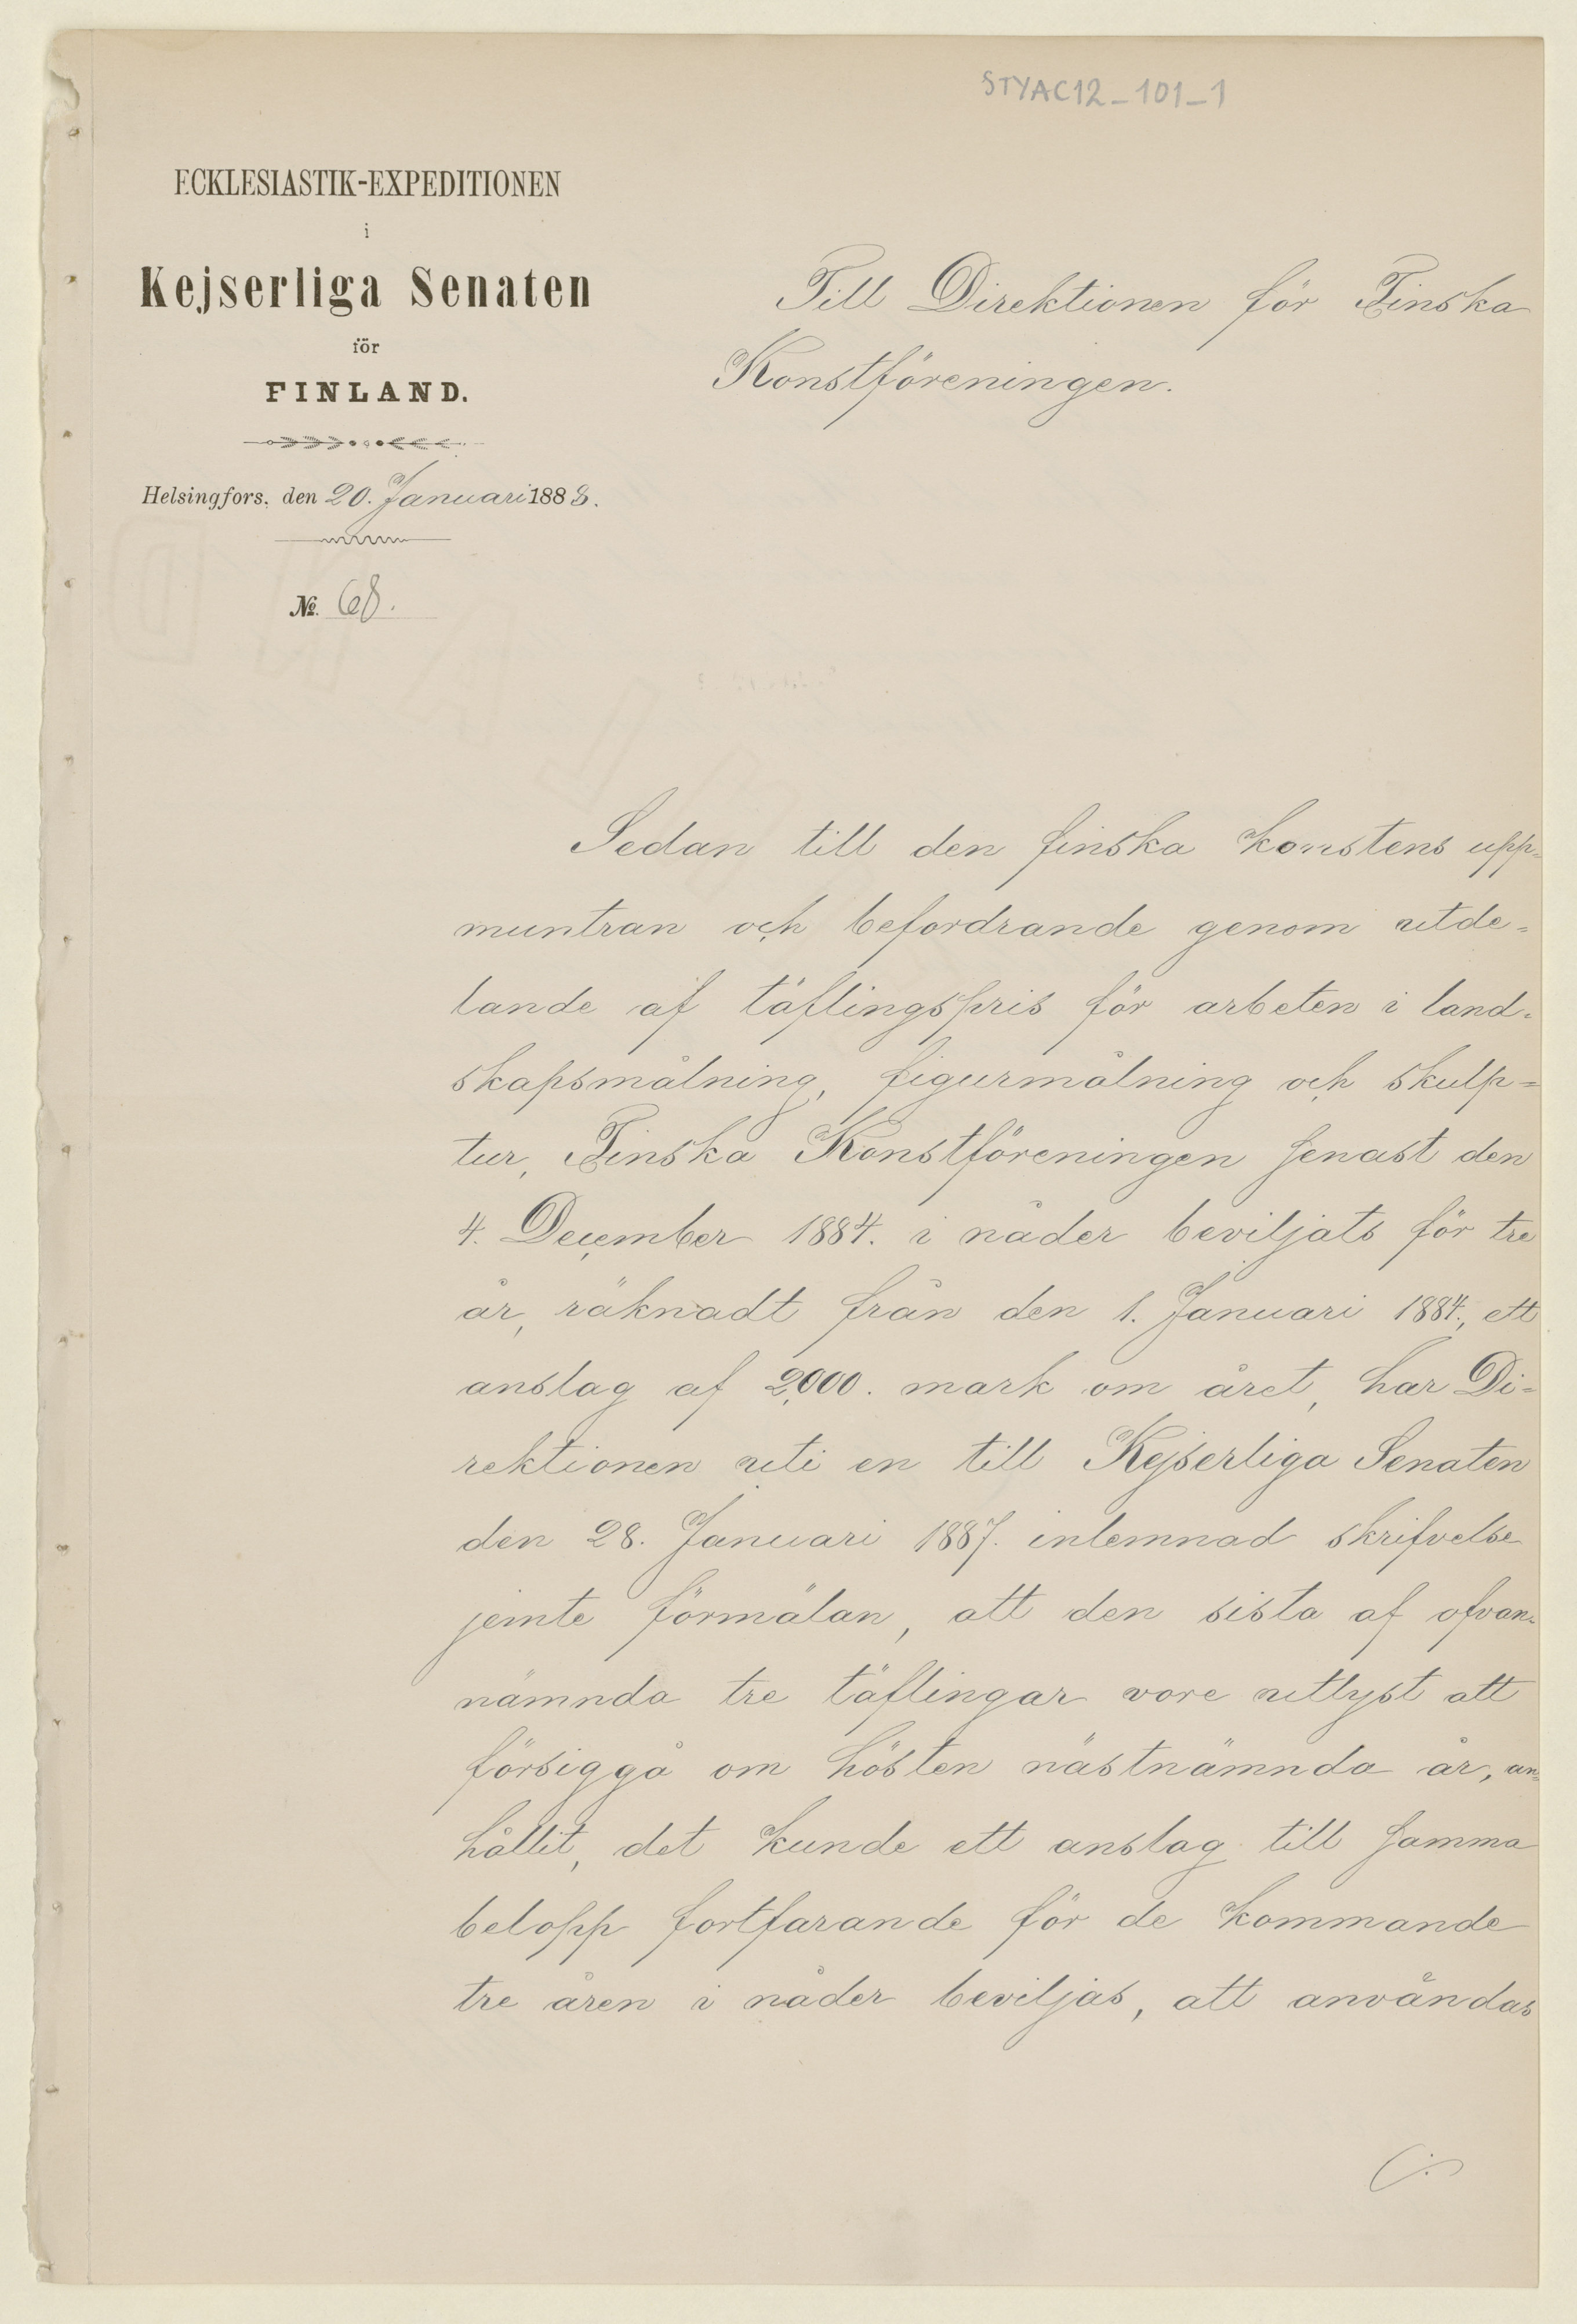 STYAC12_101_1
ECKLESIASTIK-EXPEDITIONEN
i
Kejserliga Senaten
för
FINLAND.
Helsingfors, den 20. Januari 1888.
№. 68.
Till Direktionen för Finska
Konstföreningen.
Sedan till den finska konstens upp-
muntran och befordrande genom utde-
lande af täflingspris för arbeten i land-
skapsmålning, figurmålning och skulp-
tur, Finska Konstföreningen senast den
4. December 1884. i nåder beviljats för tre
år, räknadt från den 1. Januari 1884., ett
anslag af 2,000. mark om året, har Di-
rektionen uti en till Kejserliga Senaten
den 28. Januari 1887. inlemnad skrifvelse
jemte förmälan, att den sista af ofvan-
nämnda tre täflingar vore utlyst att
försiggå om hösten nästnämnda år, an-
hållit, det kunde ett anslag till samma
belopp fortfarande för de kommande
tre åren i nåder beviljas, att användas